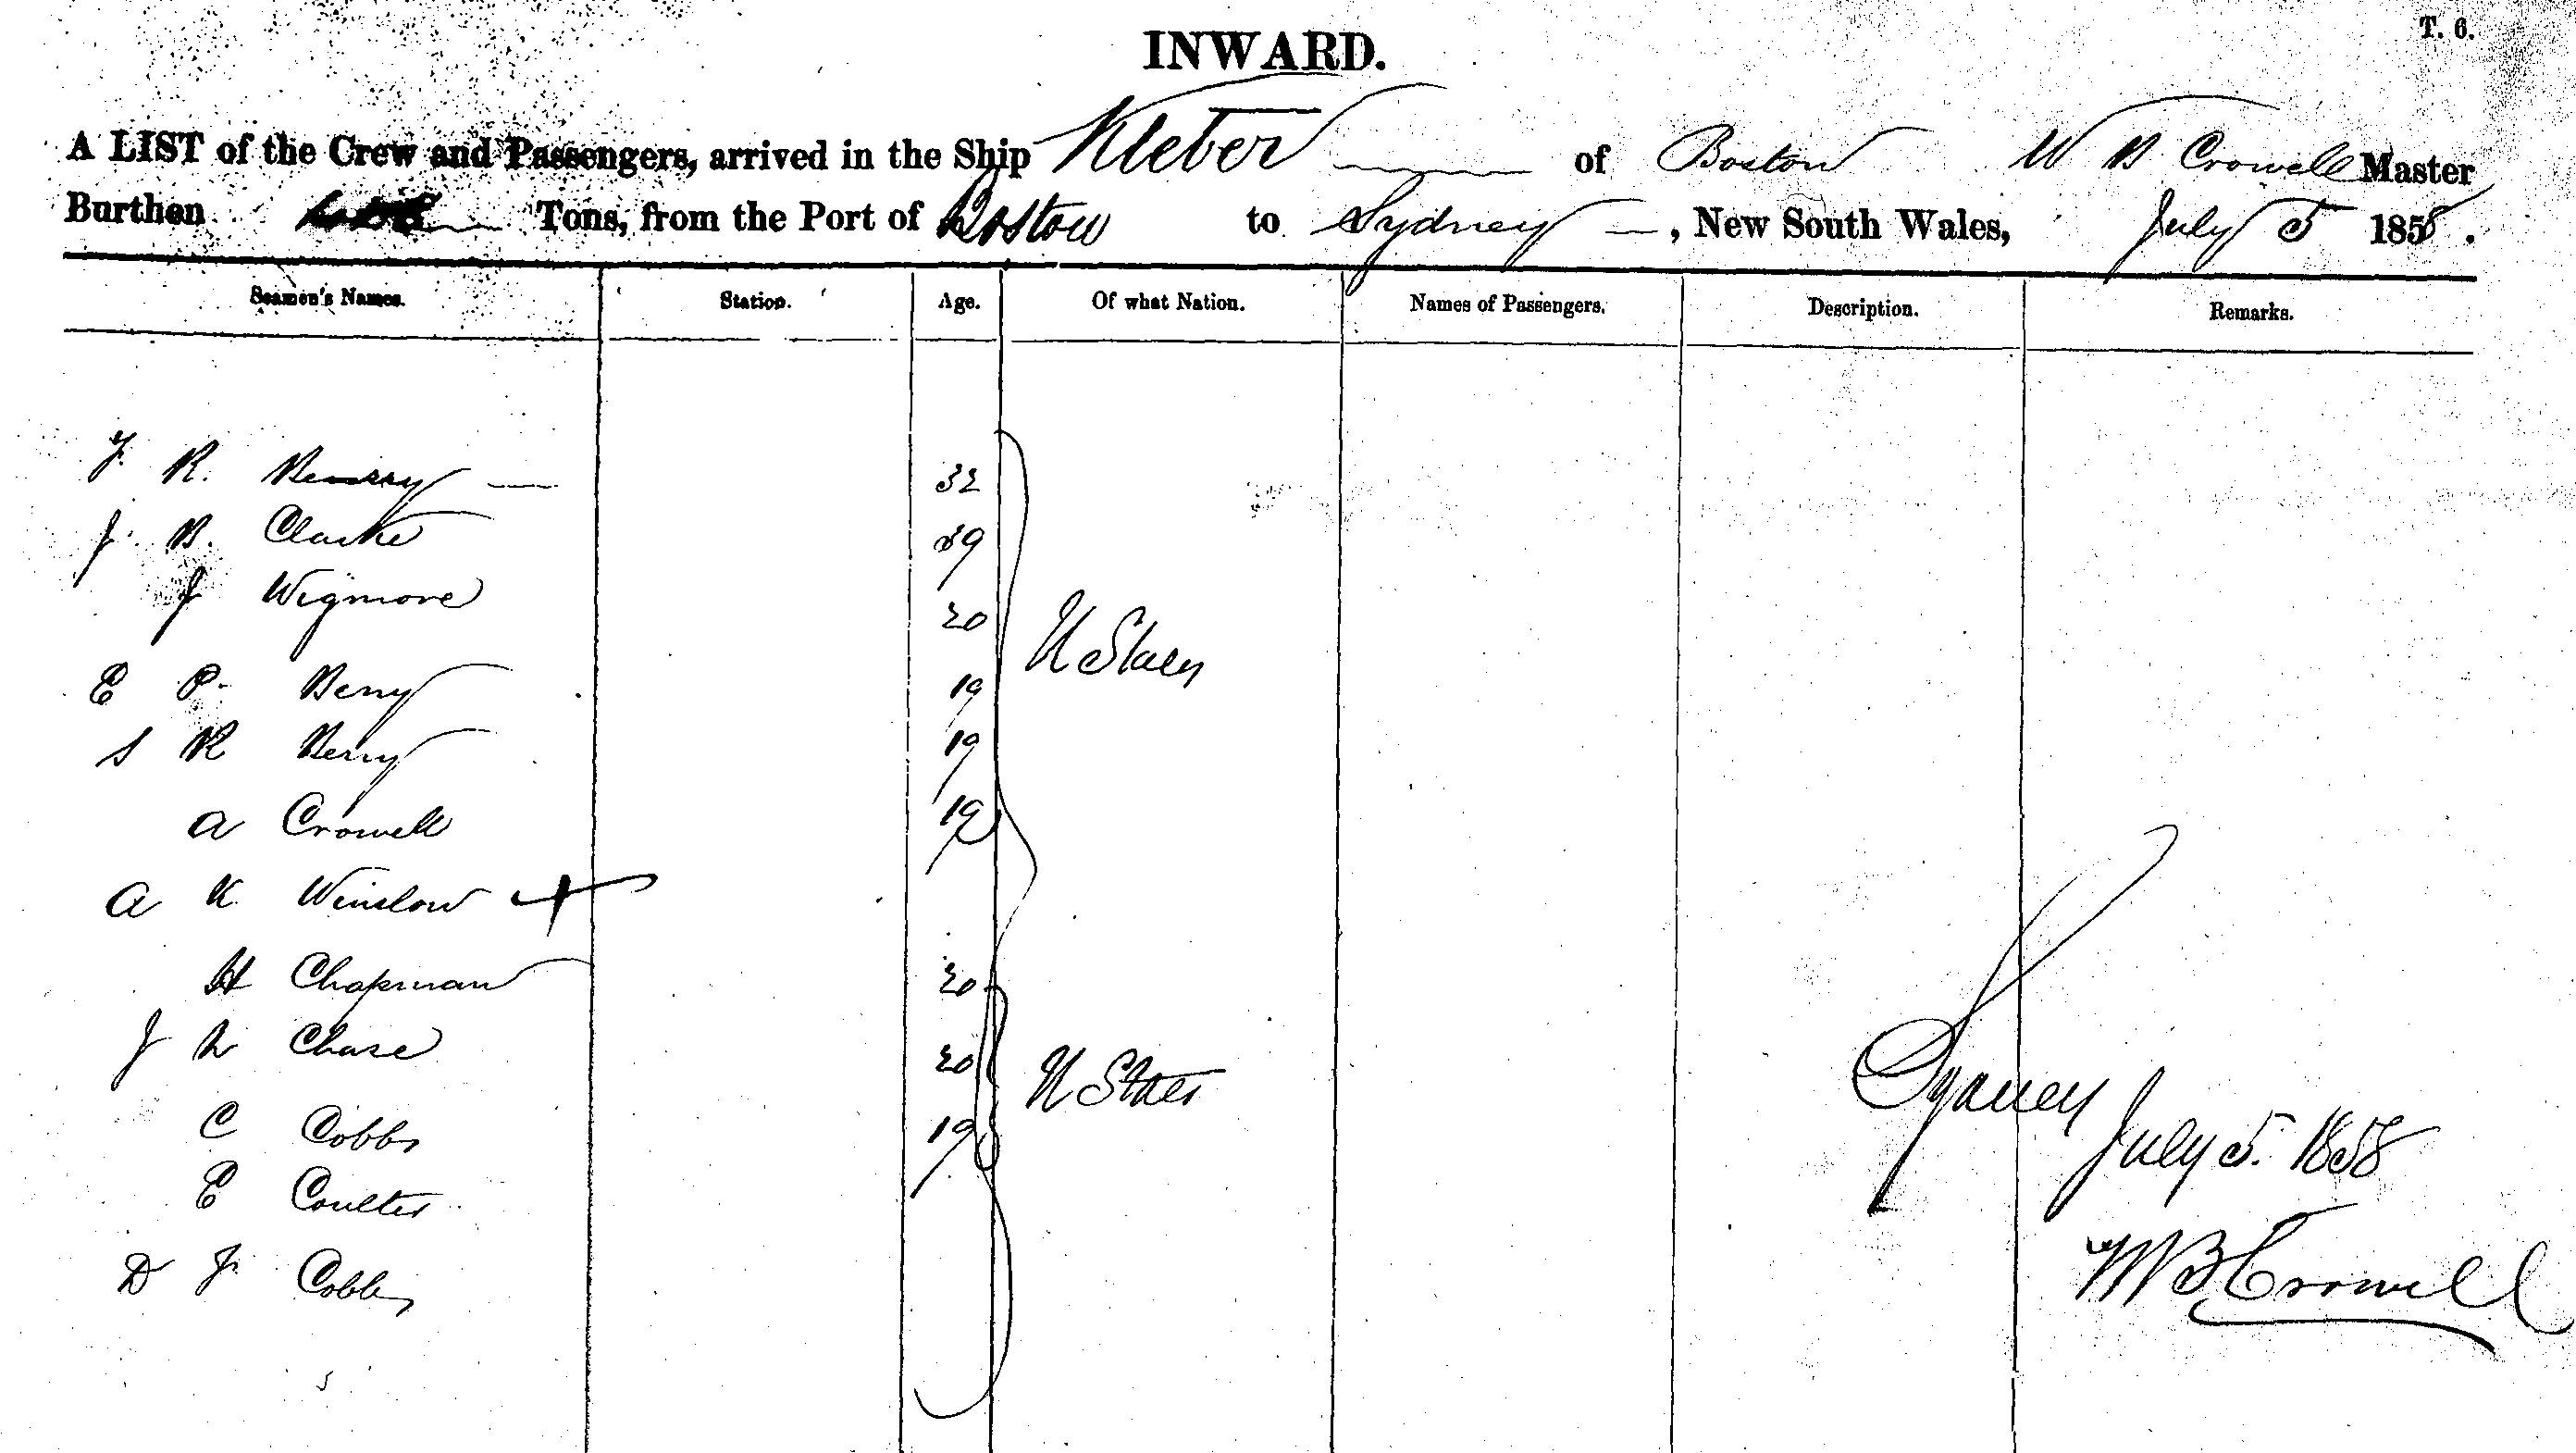 T. 6.
INWARD.
A LIST of the Crew and Passengers, arrived in the Ship Kleber of Boston W B Crowell Master
Burthen Tons, from the Port of Boston to Sydney, New South Wales, July 5 1858.
Seamen's Names. Station. Age. Of what Nation. Names of Passengers. Description. Remarks.
R. 32
J. B. Clarke 39
J Wigmore 20
U States
E P. Berry 19
S R Berry 19
A Crowell 19
A K Winslow
H Chapman 20
J Chase 20
U States
Sydney
C Cobbs 19
July 5. 1858
E Coulter
W B Crowell
D F. Cobbs